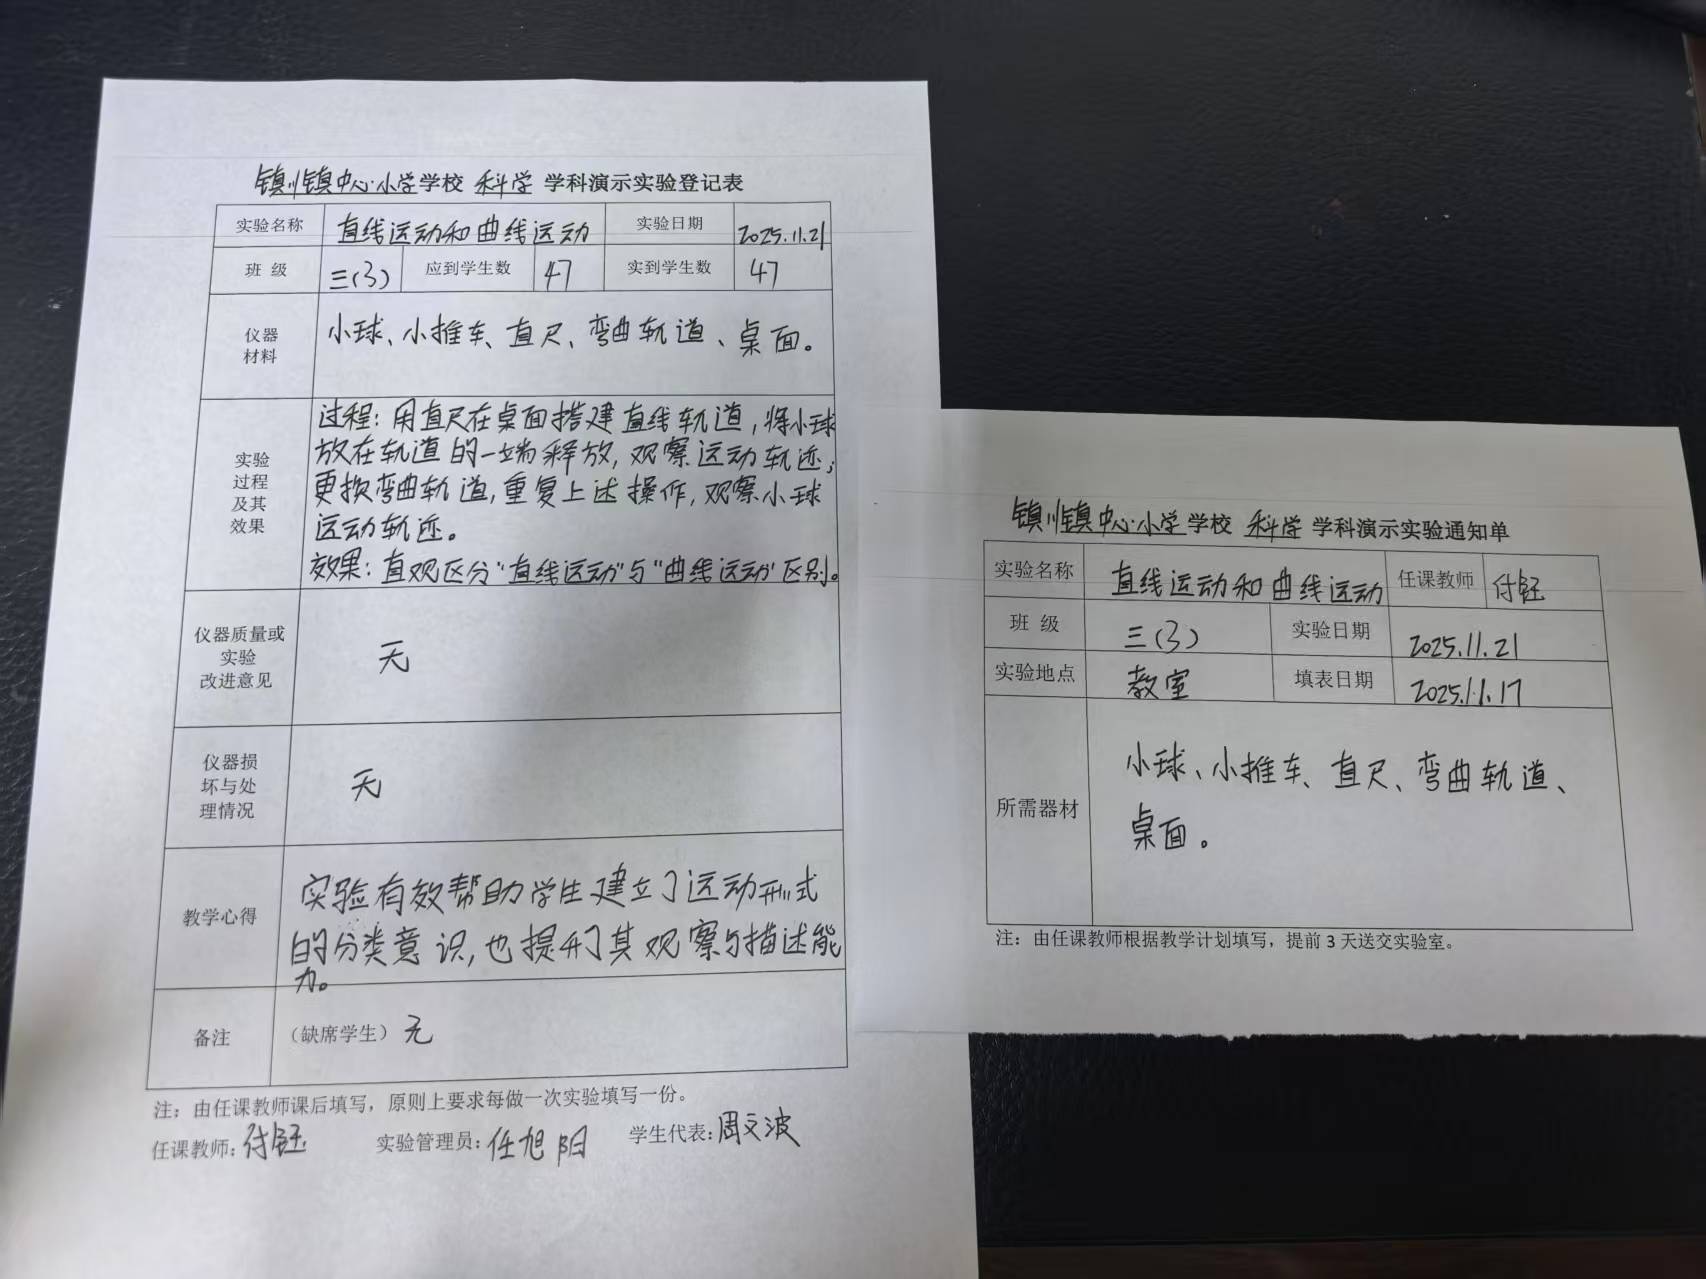 镇川镇中心小学学校 科学 学科演示实验登记表
实验名称 直线运动和曲线运动 实验日期 2025.11.21
班 级 三(3) 应到学生数 47 实到学生数 47
仪器
材料
小球、小推车、直尺、弯曲轨道、桌面。
实验
过程
及其
效果
过程：用直尺在桌面搭建直线轨道，将小球
放在轨道的一端释放，观察运动轨迹；
更换弯曲轨道，重复上述操作，观察小球
运动轨迹。
效果：直观区分“直线运动”与“曲线运动”区别。
仪器质量或
实验
改进意见
无
仪器损
坏与处
理情况
无
教学心得
实验有效帮助学生建立了运动形式
的分类意识，也提升了其观察与描述能
力。
备注 （缺席学生）无
注：由任课教师课后填写，原则上要求每做一次实验填写一份。
任课教师：付钰 实验管理员：任旭阳 学生代表：周文波
镇川镇中心小学学校 科学 学科演示实验通知单
实验名称 直线运动和曲线运动 任课教师 付钰
班 级 三(3) 实验日期 2025.11.21
实验地点 教室 填表日期 2025.11.17
所需器材
小球、小推车、直尺、弯曲轨道、
桌面。
注：由任课教师根据教学计划填写，提前 3 天送交实验室。